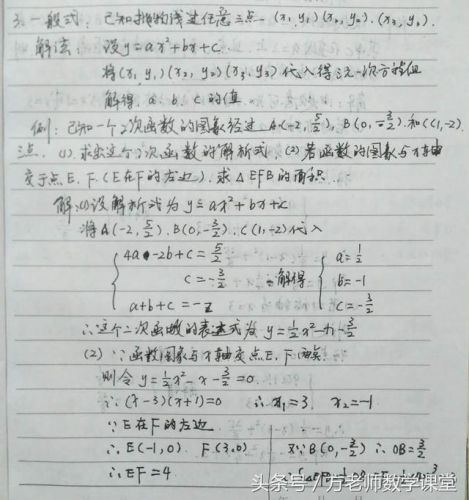 3.一般式：已知抛物线过任意三点 (x₁,y₁)(x₂,y₂).(x₃,y₃).
解法：设y=ax²+bx+c
将(x₁,y₁)(x₂,y₂)(x₃,y₃)代入得三元一次方程组
解得 a、b、c的值.
例：已知一个二次函数的图象经过 A(-2, 5/2), B(0,-3/2).和C(1,-2)
三点. (1) 求出这个二次函数的解析式. (2) 若函数的图象与x轴
交于点E、F.(E在F的左边). 求△EFB的面积.
解:(1)设解析式为 y=ax²+bx+c
将A(-2, 5/2). B(0,-3/2). C(1,-2)代入
{ 4a-2b+c=5/2 { a=1/2
c=-3/2 解得 b=-1
a+b+c=-2 c=-3/2
∴这个二次函数的表达式为 y=1/2x²-x-3/2
(2) ∵函数图象与x轴交点E、F两点
则令 y=1/2x²-x-3/2=0.
∵(x-3)(x+1)=0 ∴x₁=3, x₂=-1
∵E在F的左边.
∴E(-1,0). F(3,0) 又∵B(0,-3/2) ∴OB=3/2
∴EF=4
头条号／方老师数学课堂